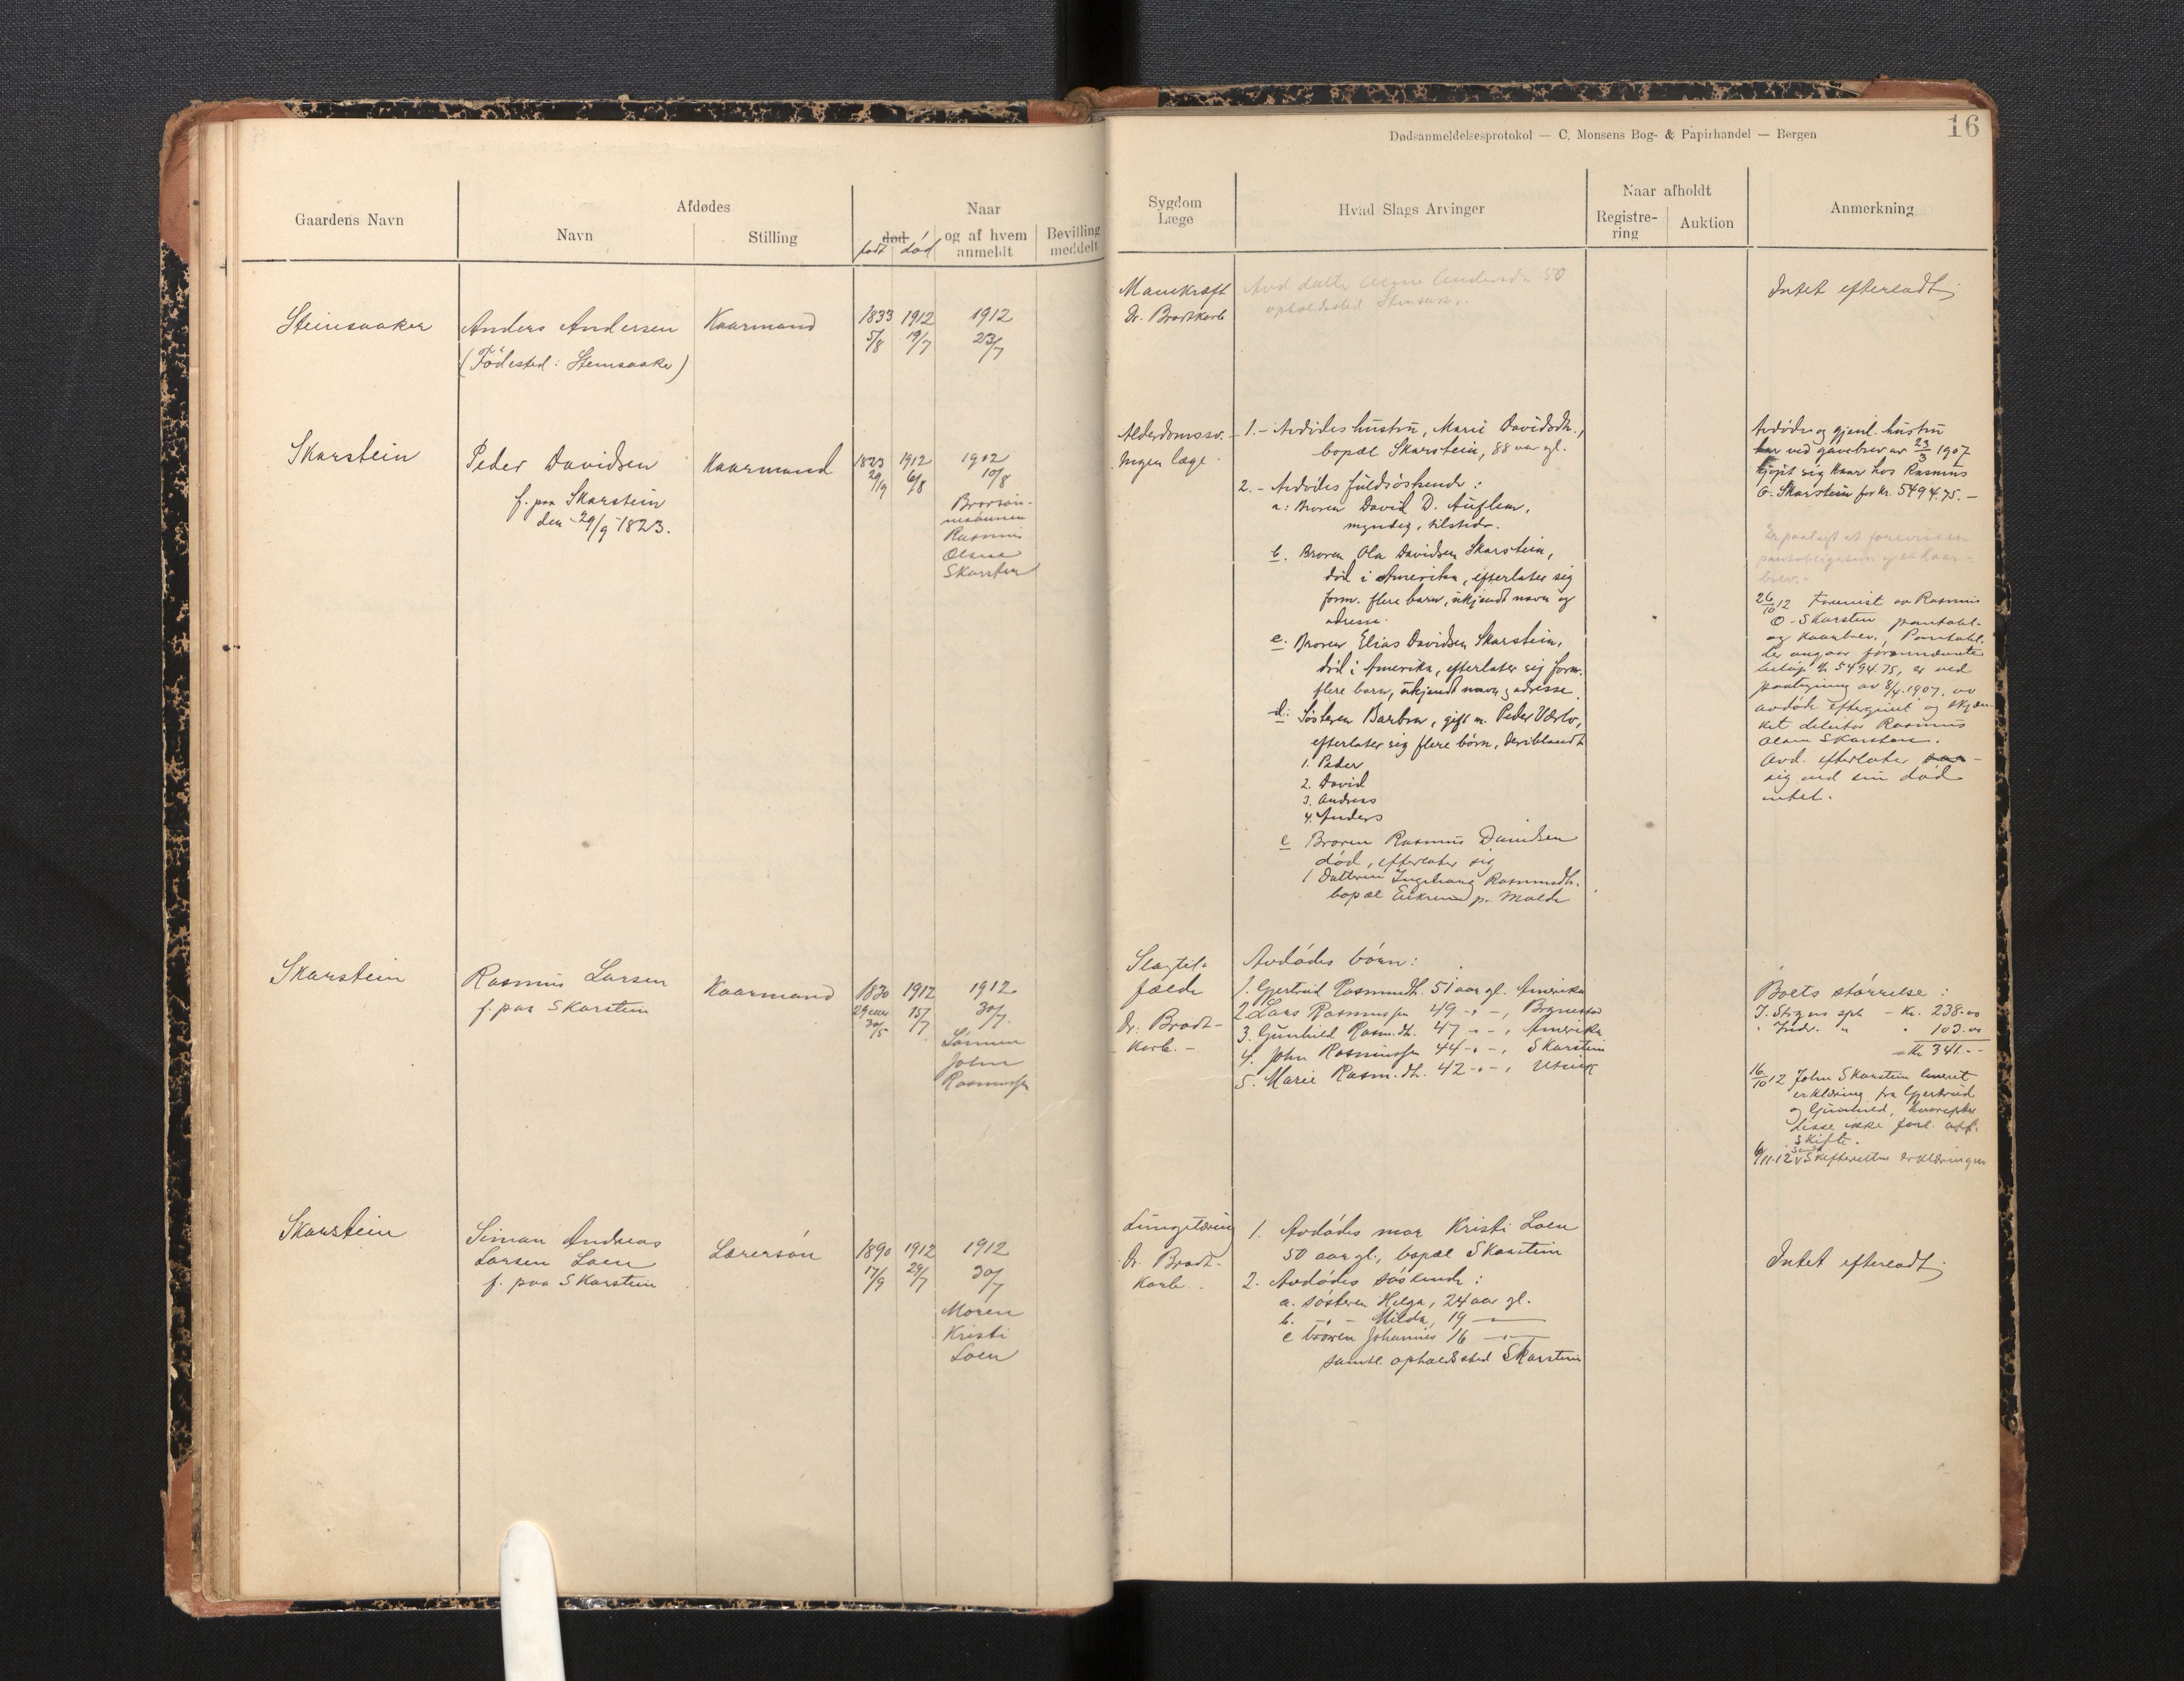 Dødsanmeldelsesprotokol — C. Monsens Bog- & Papirhandel — Bergen
16
Gaardens Navn
Afdødes
Navn
Stilling
Naar
død
født død
og af hvem
anmeldt
Bevilling
meddelt
Sygdom
Læge
Hvad Slags Arvinger
Naar afholdt
Registre-
ring
Auktion
Anmerkning
Steinsaaker
Anders Andersen
(Fødested: Steinsaaker)
Kaarmand
1833 1912 1912
5/8 19/7 23/7
Mavekræft
Dr. Bradtkorb
Avd datter Andersd. 50
opholdssted Steinsak.
Intet efterladt
Skarstein
Peder Davidsen
f. paa Skarstein
den 29/9 1823.
Kaarmand
1823 1912 1912
29/9 6/8 10/8
Brorsøn-
Rasmus
Olsen
Skarstein
Alderdomssv.
Ingen læge
1. - Avdødes hustru, Marie Davidsdtr.,
bopæl Skarstein, 88 aar gl.
2. - Avdødes fuldsøskende:
a: Broren David D. Auflem,
myndig, tilstede.
b. Broren Ola Davidsen Skarstein,
død i Amerika, efterlater sig
form. flere barn, ukjendt navn og
adresse.
c. Broren Elias Davidsen Skarstein,
død i Amerika, efterlater sig form.
flere barn, ukjendt navn og adresse.
d: Søsteren Barbra, gift m. Peder
efterlater sig flere børn, deriblandt
1. Peder
2. David
3. Andreas
4. Anders
e Broren Rasmus Davidsen
død, efterlater sig
1 Datteren Ingebrang Rasmusdtr.
bopæl pr. Molde
Avdøde og gjenl. hustru
har ved gavebrev av 23/3 1907
kjøpt sig kaar hos Rasmus
O. Skarstein for kr. 5494.75. -
Er paalagt at forevise en
panteobligasjon og et kaar-
brev. -
26/10 12 Fremvist av Rasmus
O. Skarstein pantobl.
og kaarbrev. Pantobl.
der angaar forannævnte
beløp kr 5494.75, er ved
paategning av 8/4 1907, av
avdøde eftergivet og skjæn-
ket debitor Rasmus
Olsen Skarstein.
Avd. efterlater
sig ved sin død
intet.
Skarstein
Rasmus Larsen
f. paa Skarstein
Kaarmand
1830 1912 1912
30/5 15/7 30/7
Sønnen
John
Rasmussen
Slagtil-
fælde
Dr. Bradt-
korb. -
Avdødes børn:
1. Gjertrud Rasmusdtr. 51 aar gl. Amerika
2 Lars Rasmussen 49 -"-, Brynestad
3. Gunhild Rasm.dtr. 47 -"-, Amerika
4. John Rasmussen 44 -"-, Skarstein
5. Marie Rasm.dtr. 42 -"-, Utvik
Boets størrelse:
- Kr. 238.00
" Indr. " " 103.00
= Kr 341.--
16/10 12 John Skarstein leveret
erklæring fra Gjertrud
og Gunhild, hvorefter
disse ikke forl. off.
skifte.
6/11.12 sendt skifteretten erklæringen
Skarstein
Simon Andreas
Larsen Loen
f. paa Skarstein
Lærersøn
1890 1912 1912
17/9 29/7 30/7
Moren
Kristi
Loen
Lungetæring
Dr. Bradt-
korb.
1. Avdødes mor Kristi Loen
50 aar gl., bopæl Skarstein
2. Avdødes søskende:
a. søsteren Helga, 24 aar gl.
b. -"- Milda, 19 -"-
c broren Johannes 16 -"-
samtl. opholdssted Skarstein
Intet efterladt.